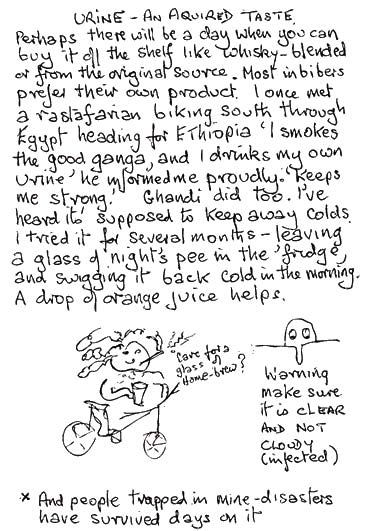 URINE – AN AQUIRED TASTE.
Perhaps there will be a day when you can
buy it off the shelf like whisky-blended
or from the original source. Most inbibers
prefer their own product. I once met
a rastafarian biking south through
Egypt heading for Ethiopia 'I smokes
the good ganga, and I drinks my own
urine' he informed me proudly. 'Keeps
me strong.' Ghandi did too. I've
heard its supposed to keep away colds.
I tried it for several months – leaving
a glass of night's pee in the 'fridge,
and swigging it back cold in the morning.
A drop of orange juice helps.
"Care for a
glass of
Home-brew?
Warning
make sure
it is CLEAR
AND NOT
CLOUDY
(infected)
* And people trapped in mine-disasters
have survived days on it